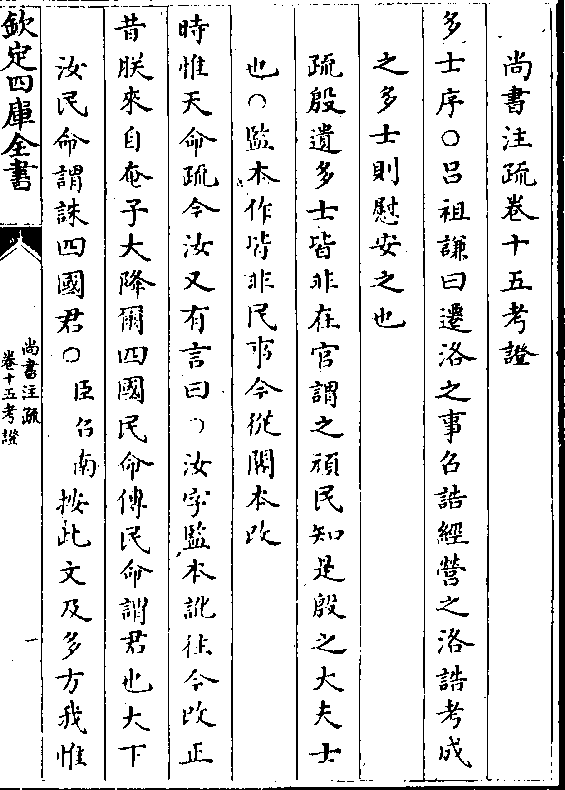 尚書注疏卷十五考證
多士序○呂祖謙曰遷洛之事召誥經營之洛誥考成
之多士則慰安之也
疏殷遺多士皆非在官謂之頑民知是殷之大夫士
也○監本作皆非民事今從閣本改
時惟天命疏今汝又有言曰○汝字監本訛往今改正
昔朕來自奄予大降爾四國民命傳民命謂君也大下
汝民命謂誅四國君○臣召南按此文及多方我惟
欽定四庫全書
尚書注疏
卷十五考證
一